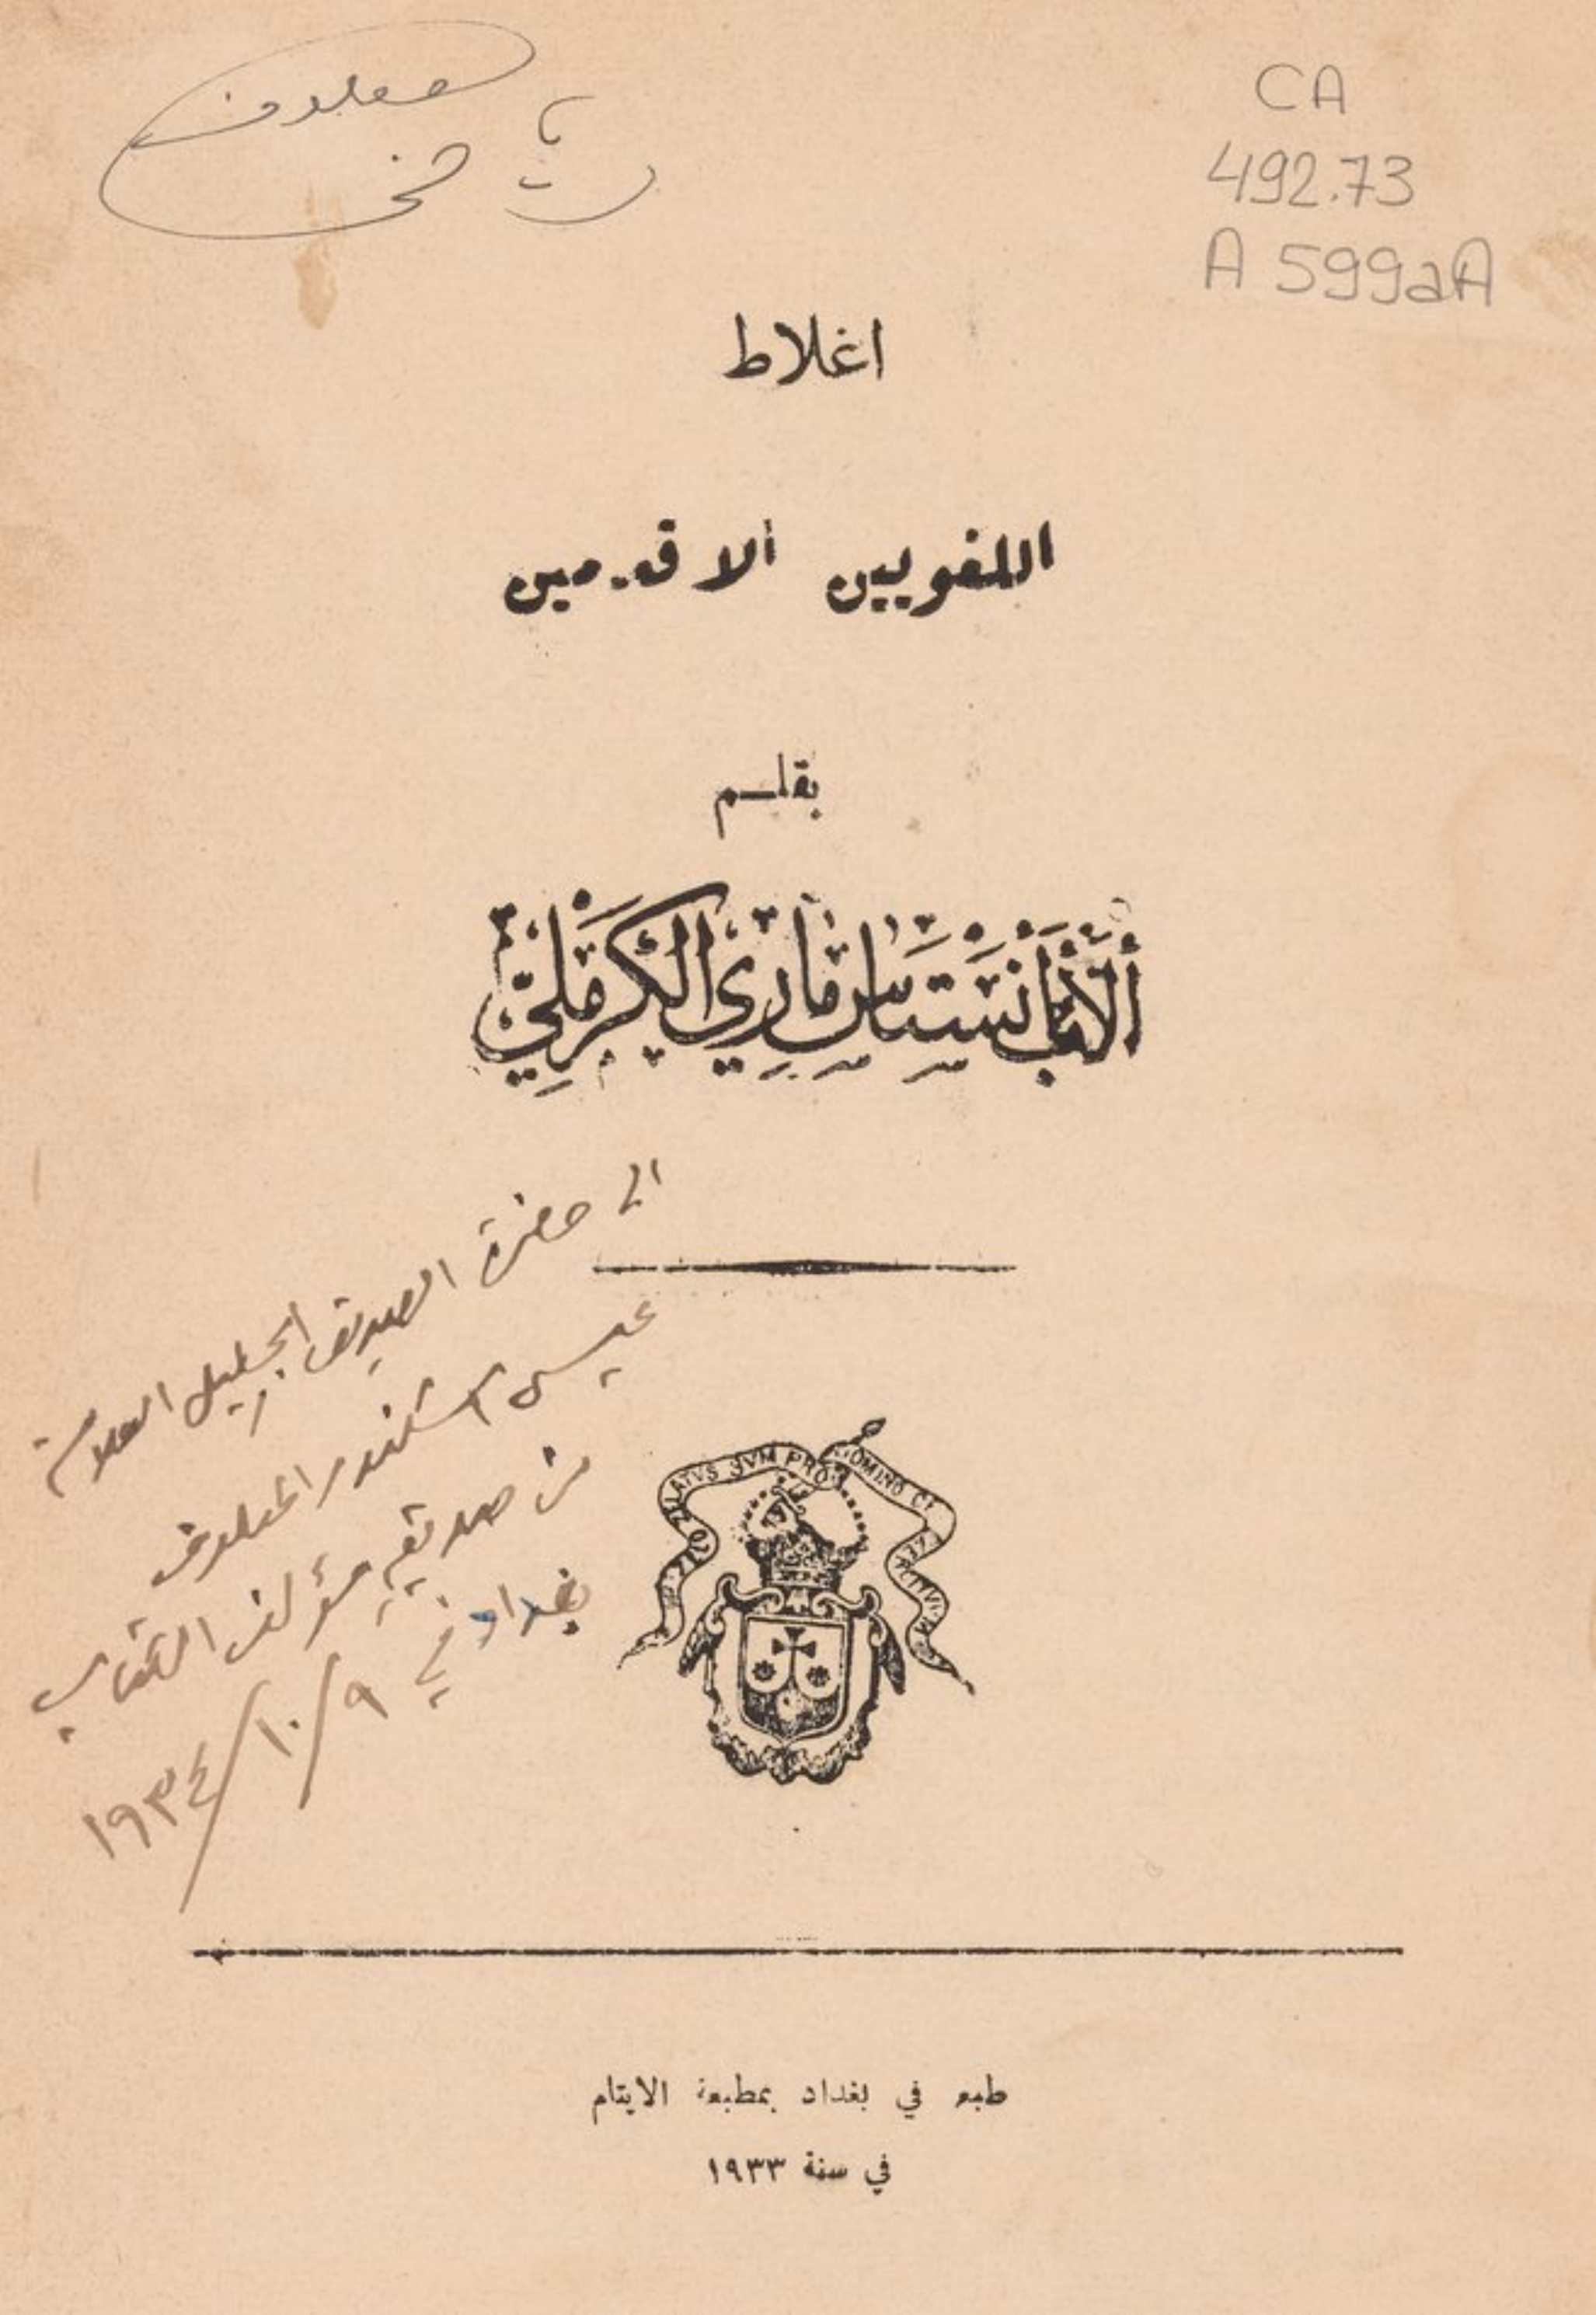 CA
492.73
A 599aA
معلوف
اغلاط
اللغويين الاقدمين
بقلم
أَلْأَبُ أَنِسْتَاس مَارِي الْكَرْمَلِيّ
الى حضرة الصديق الجليل العلامة
عيسى اسكندر المعلوف
من صديقه مؤلف الكتاب
بغداد في ٩/١٠/١٩٣٤
ZELO ZELATVS SVM PRO DOMINO
طبع في بغداد بمطبعة الايتام
في سنة ١٩٣٣